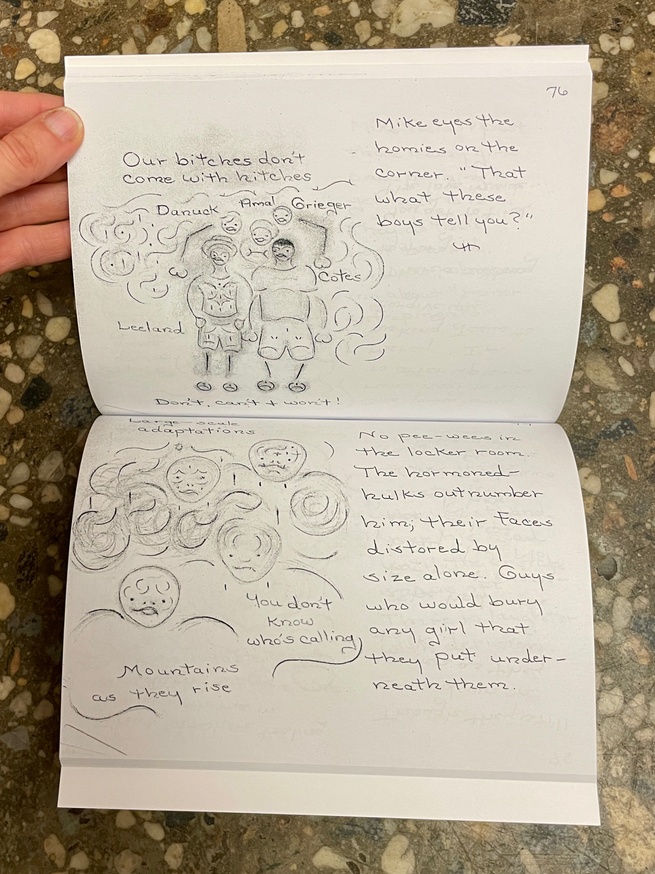 76
Our bitches don't
come with hitches
Danuck Amal Grieger
Cotes
Leeland
Don't, can't + won't!
Mike eyes the
homies on the
corner. "That
what these
boys tell you?"
Large-scale
adaptations
You don't
know
who's calling
Mountains
as they rise
No pee-wees in
the locker room.
The hormoned-
hulks outnumber
him; their Faces
distored by
size alone. Guys
who would bury
any girl that
they put under-
neath them.